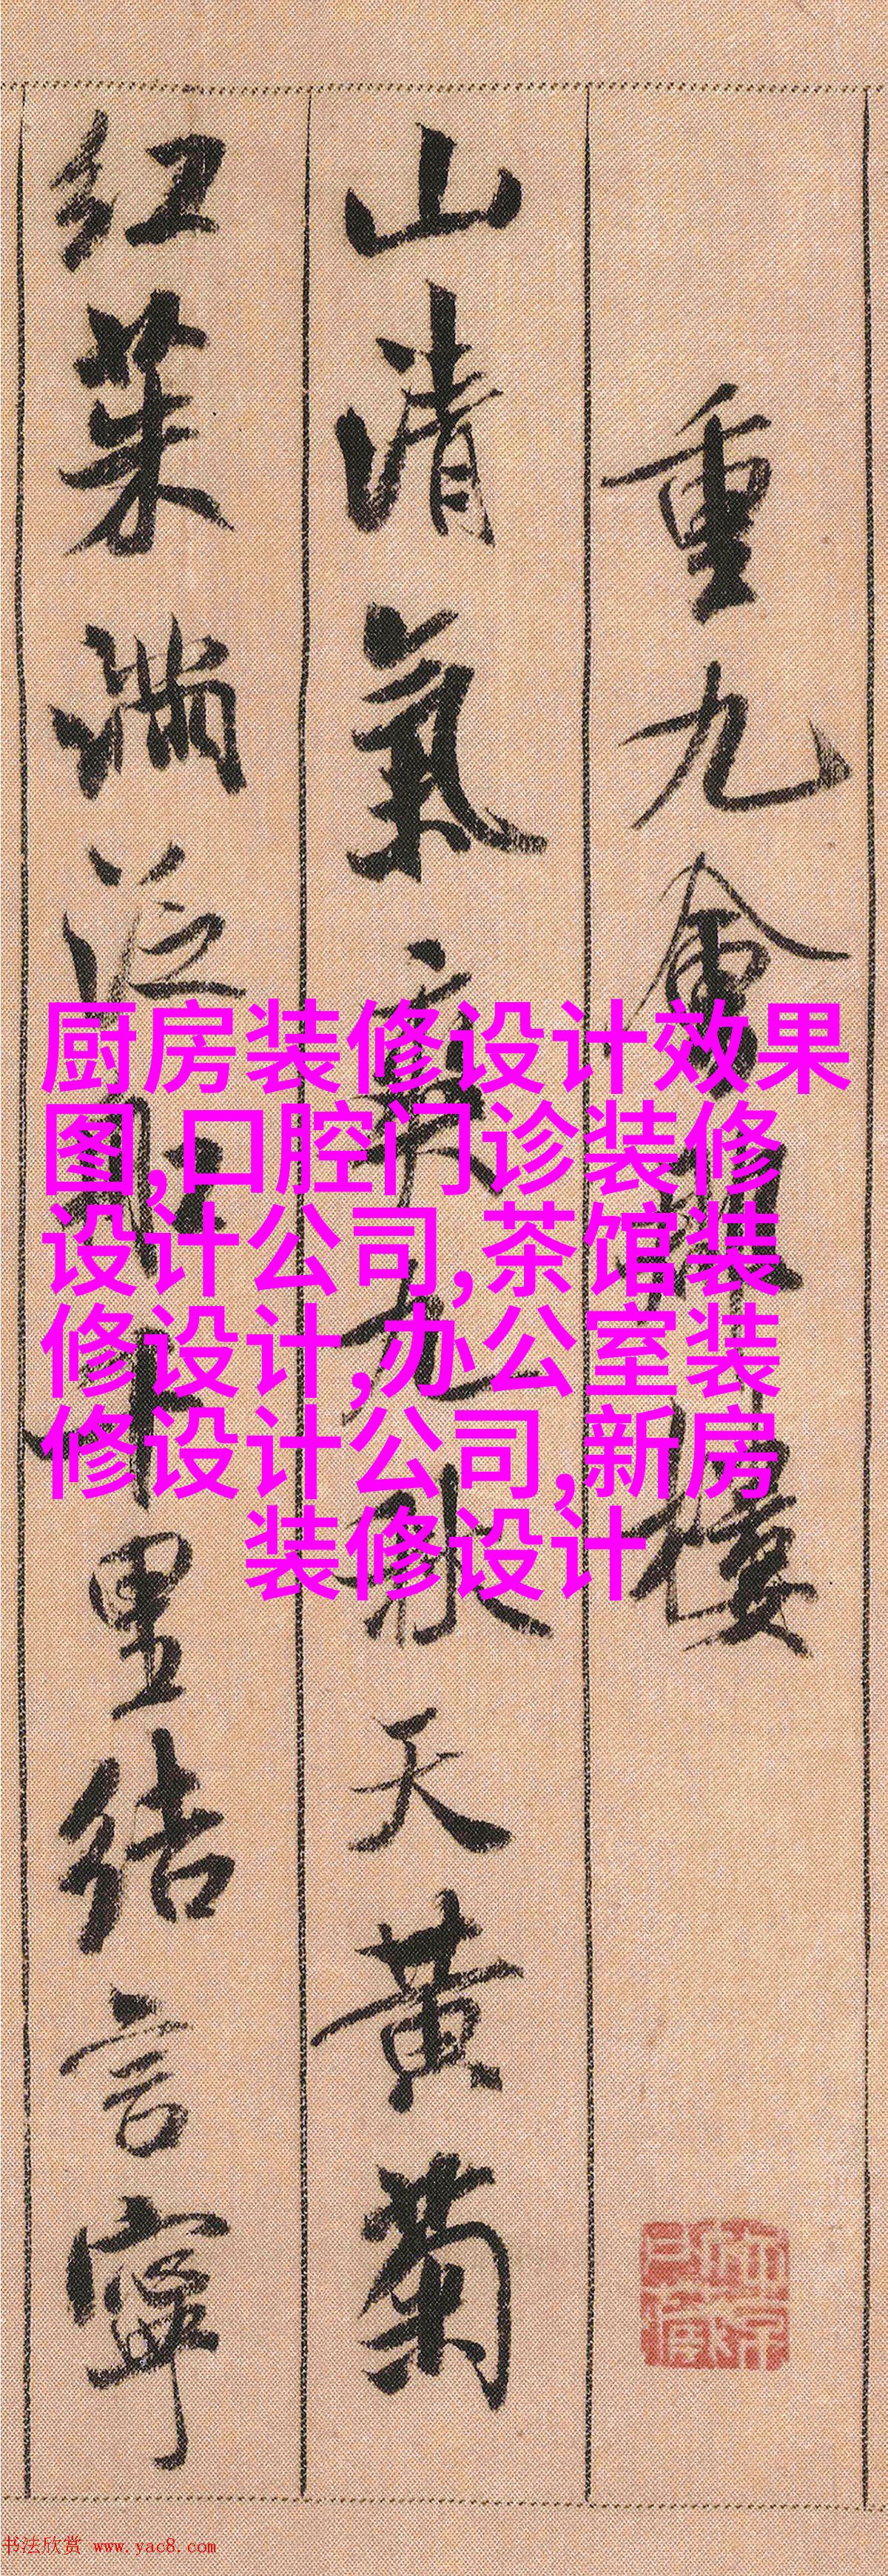 重九會樓
山清氣爽九秋天黃菊
紅茱滿泛千里結言寧
厨房装修设计效果
图,口腔门诊装修
设计公司,茶馆装
修设计,办公室装
修设计公司,新房
装修设计
书法欣赏 www.yac8.com